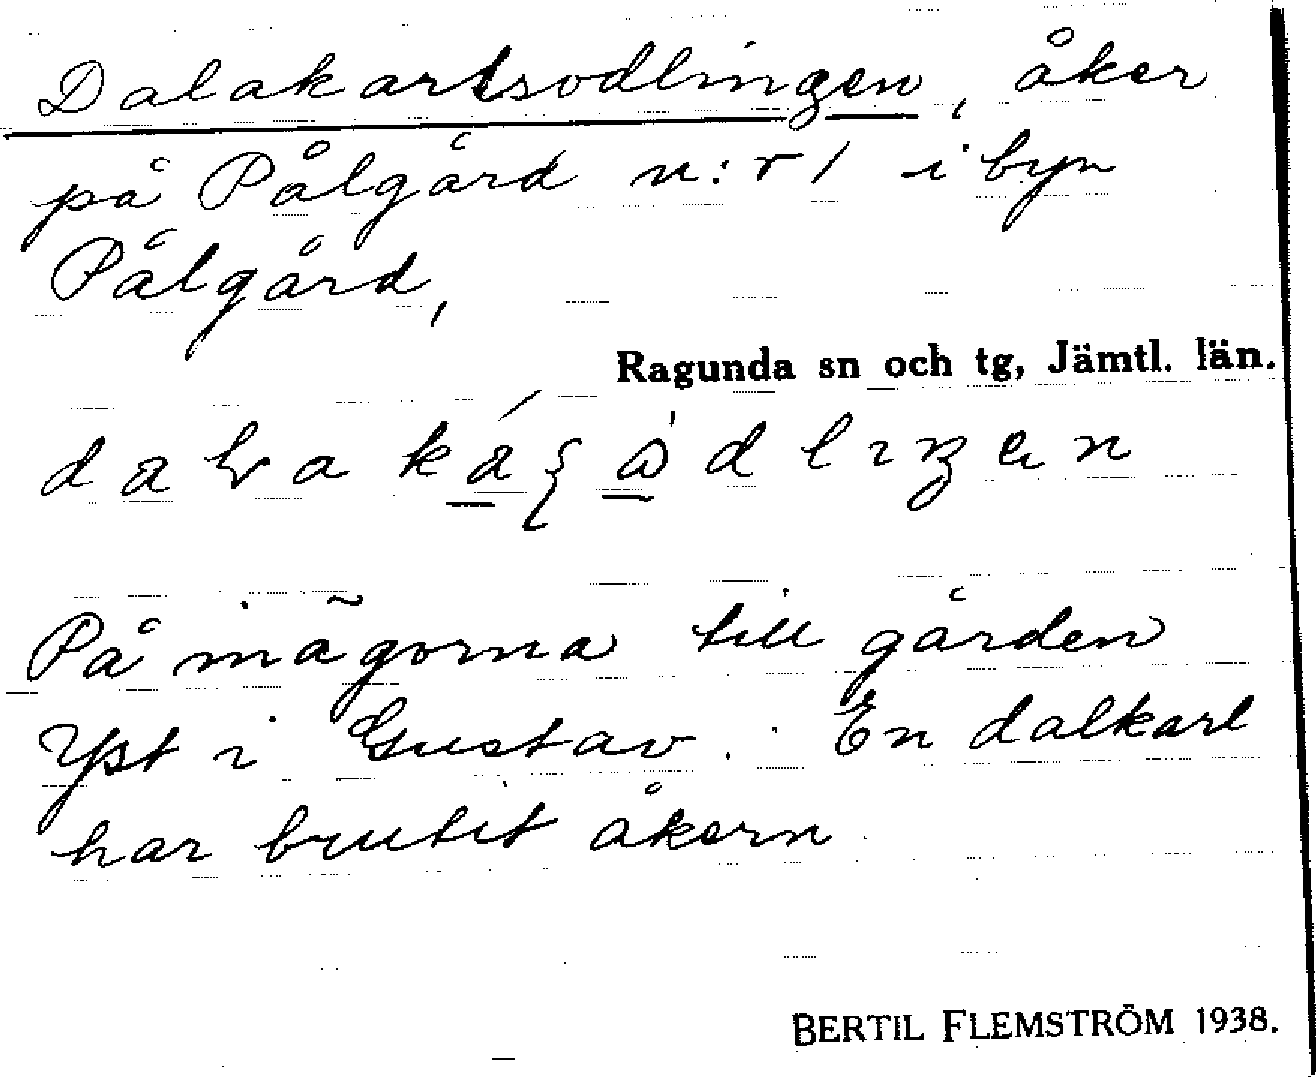 Dalakarlsodlingen, åker
på Pålgård n:r 1 i byn
Pålgård,
Ragunda sn och tg, Jämtl. län.
På mägorna till gården
Yst i Gustav. En dalkarl
har brutit åkern
BERTIL FLEMSTRÖM 1938.